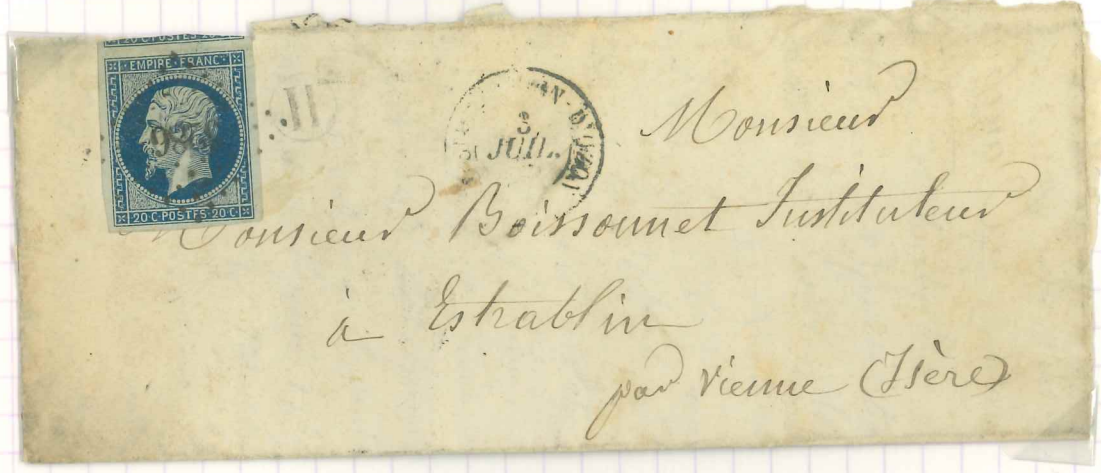 20 C POSTES 20 C
EMPIRE FRANC
20 C POSTES 20 C
H
3
JUIL.
Monsieur
Monsieur Boissonnet Instituteur
à Estrablin
par Vienne (Isère)